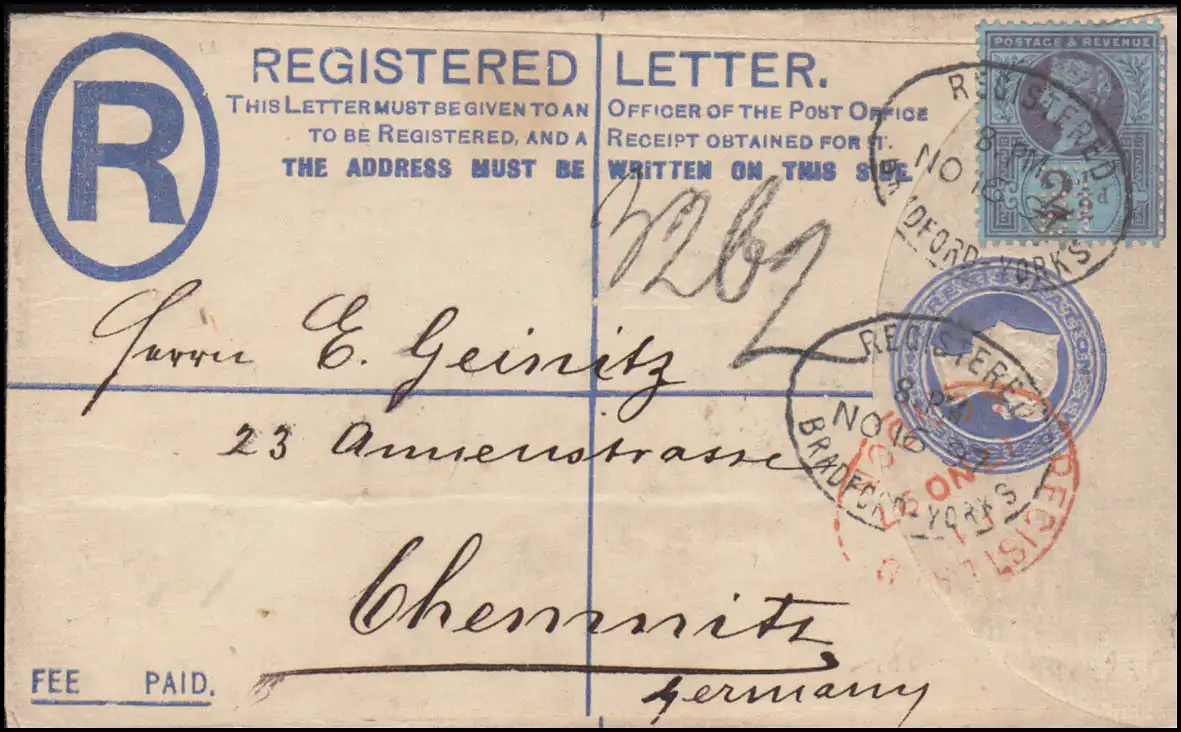 R
REGISTERED LETTER.
THIS LETTER MUST BE GIVEN TO AN OFFICER OF THE POST OFFICE
TO BE REGISTERED, AND A RECEIPT OBTAINED FOR IT.
THE ADDRESS MUST BE WRITTEN ON THIS SIDE.
POSTAGE & REVENUE
REGISTERED
8 PM
NO 16 97
BRADFORD-YORKS
Herrn E. Geinitz
23 Annenstrasse
Chemnitz
Germany
REGISTERED
8 PM
NO 16 97
BRADFORD-YORKS
REGISTERED
FEE PAID.